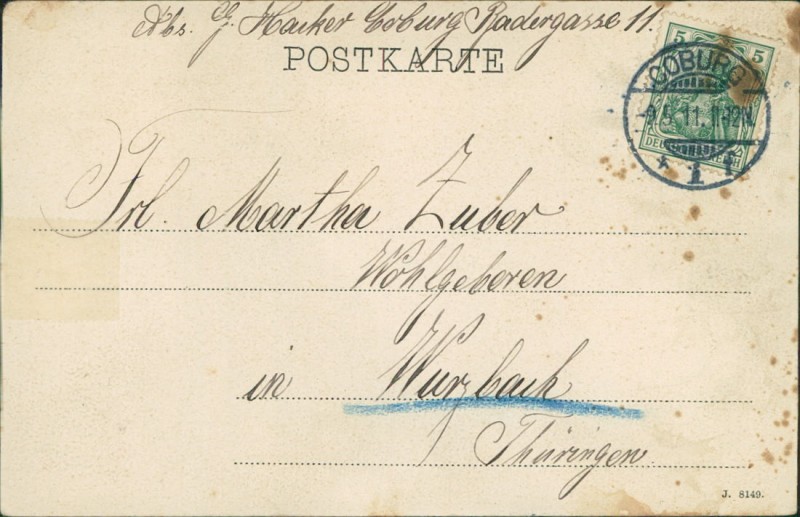 Abs. G. Hacker Coburg Radergasse 11.
POSTKARTE
5 5
COBURG
9.5.11. 11-12N.
DEUTSCHES REICH
* 1 *
Frl. Martha Zuber
Wohlgeboren
in Wurzbach
Thüringen
J. 8149.